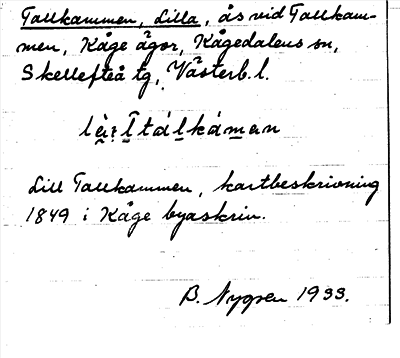 Tallkammen, Lilla, ås vid Tallkam-
men, Kåge ägor, Kågedalens sn,
Skellefteå tg, Västerb. l.
Lill Tallkammen, kartbeskrivning
1849 i Kåge byaskrin.
B. Nygren 1933.